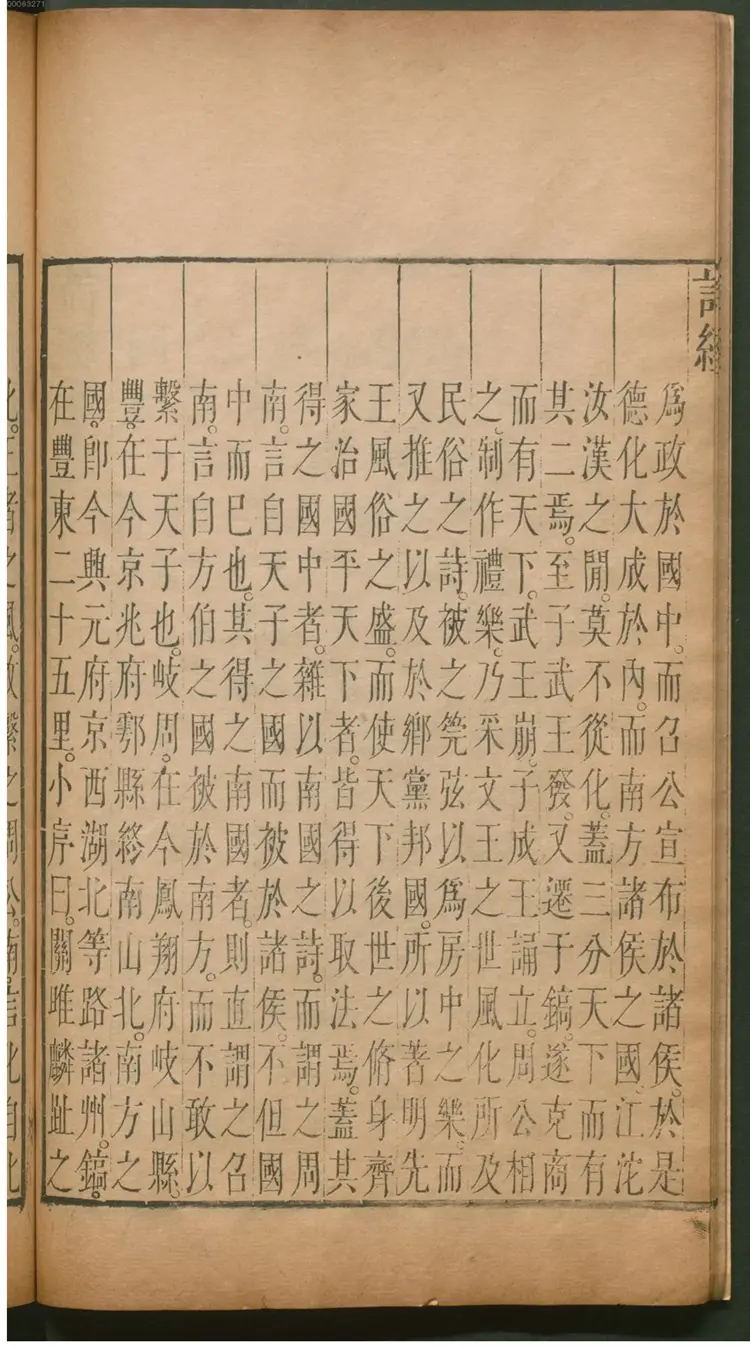 00063271
詩經
爲政於國中。而召公宣布於諸侯。於是
德化大成於內。而南方諸侯之國。江沱
汝漢之閒。莫不從化。蓋三分天下而有
其二焉。至子武王發。又遷于鎬。遂克商
而有天下。武王崩。子成王誦立。周公相
之。制作禮樂。乃采文王之世風化所及
民俗之詩。被之筦弦以爲房中之樂。而
又推之以及於鄉黨邦國。所以著明先
王風俗之盛。而使天下後世之脩身齊
家治國平天下者。皆得以取法焉。蓋其
得之國中者。雜以南國之詩。而謂之周
南。言自天子之國而被於諸侯。不但國
中而已也。其得之南國者。則直謂之召
南。言自方伯之國被於南方。而不敢以
繫于天子也。岐周。在今鳳翔府岐山縣。
豐。在今京兆府鄠縣終南山北。南方之
國。卽今興元府京西湖北等路諸州。鎬
在豐東二十五里。小序曰。關雎麟趾之
化。王者之風。故繫之周公。南。言化自北